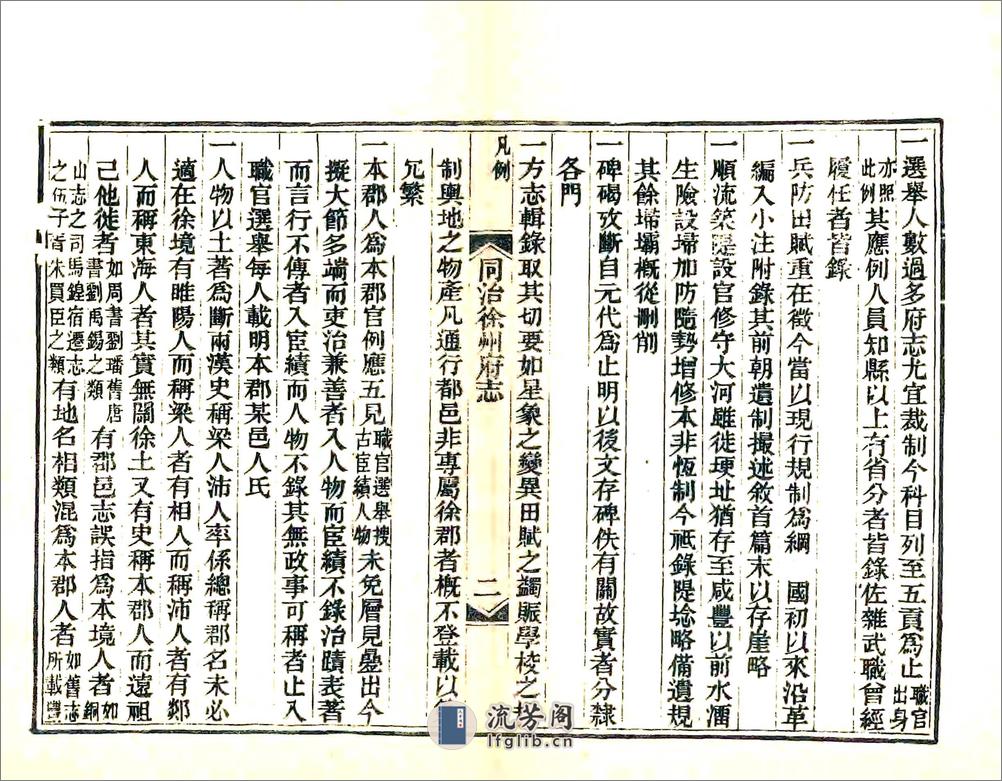 一選舉人數過多府志尤宜裁制今科目列至五貢爲止職官出身
亦照此例其應例人員知縣以上有省分者皆錄佐雜武職曾經
履任者皆錄
一兵防田賦重在徵今當以現行規制爲綱　國初以來沿革
編入小注附錄其前朝遺制撮述敘首篇末以存崖略
一順流築隄設官修守大河雖徙埂址猶存至咸豐以前水湎
生險設埽加防隨勢增修本非恆制今祗錄隄埝略備遺規
其餘埽壩概從刪削
一碑碣攷斷自元代爲止明以後文存碑佚有關故實者分隸
各門
一方志輯錄取其切要如星象之變異田賦之蠲賑學校之
制輿地之物產凡通行都邑非專屬徐郡者概不登載以
冗繁
一本郡人爲本郡官例應五見職官選舉搜古宦績人物未免層見疊出今
擬大節多端而吏治兼善者入人物而宦績不錄治蹟表著
而言行不傳者入宦績而人物不錄其無政事可稱者止入
職官選舉每人載明本郡某邑人氏
一人物以土著爲斷兩漢史稱梁人沛人率係總稱郡名未必
適在徐境有睢陽人而稱梁人者有相人而稱沛人者有郯
人而稱東海人者其實無關徐土又有史稱本郡人而遠祖
己他徙者如周書劉璠舊唐書劉禹錫之類有郡邑志誤指爲本境人者如銅
山志之司馬鍠宿遷志之伍子胥朱買臣之類有地名相類混爲本郡人者如舊志所載豐
凡例
同治徐州府志
二
流芳阁
lfglib.cn